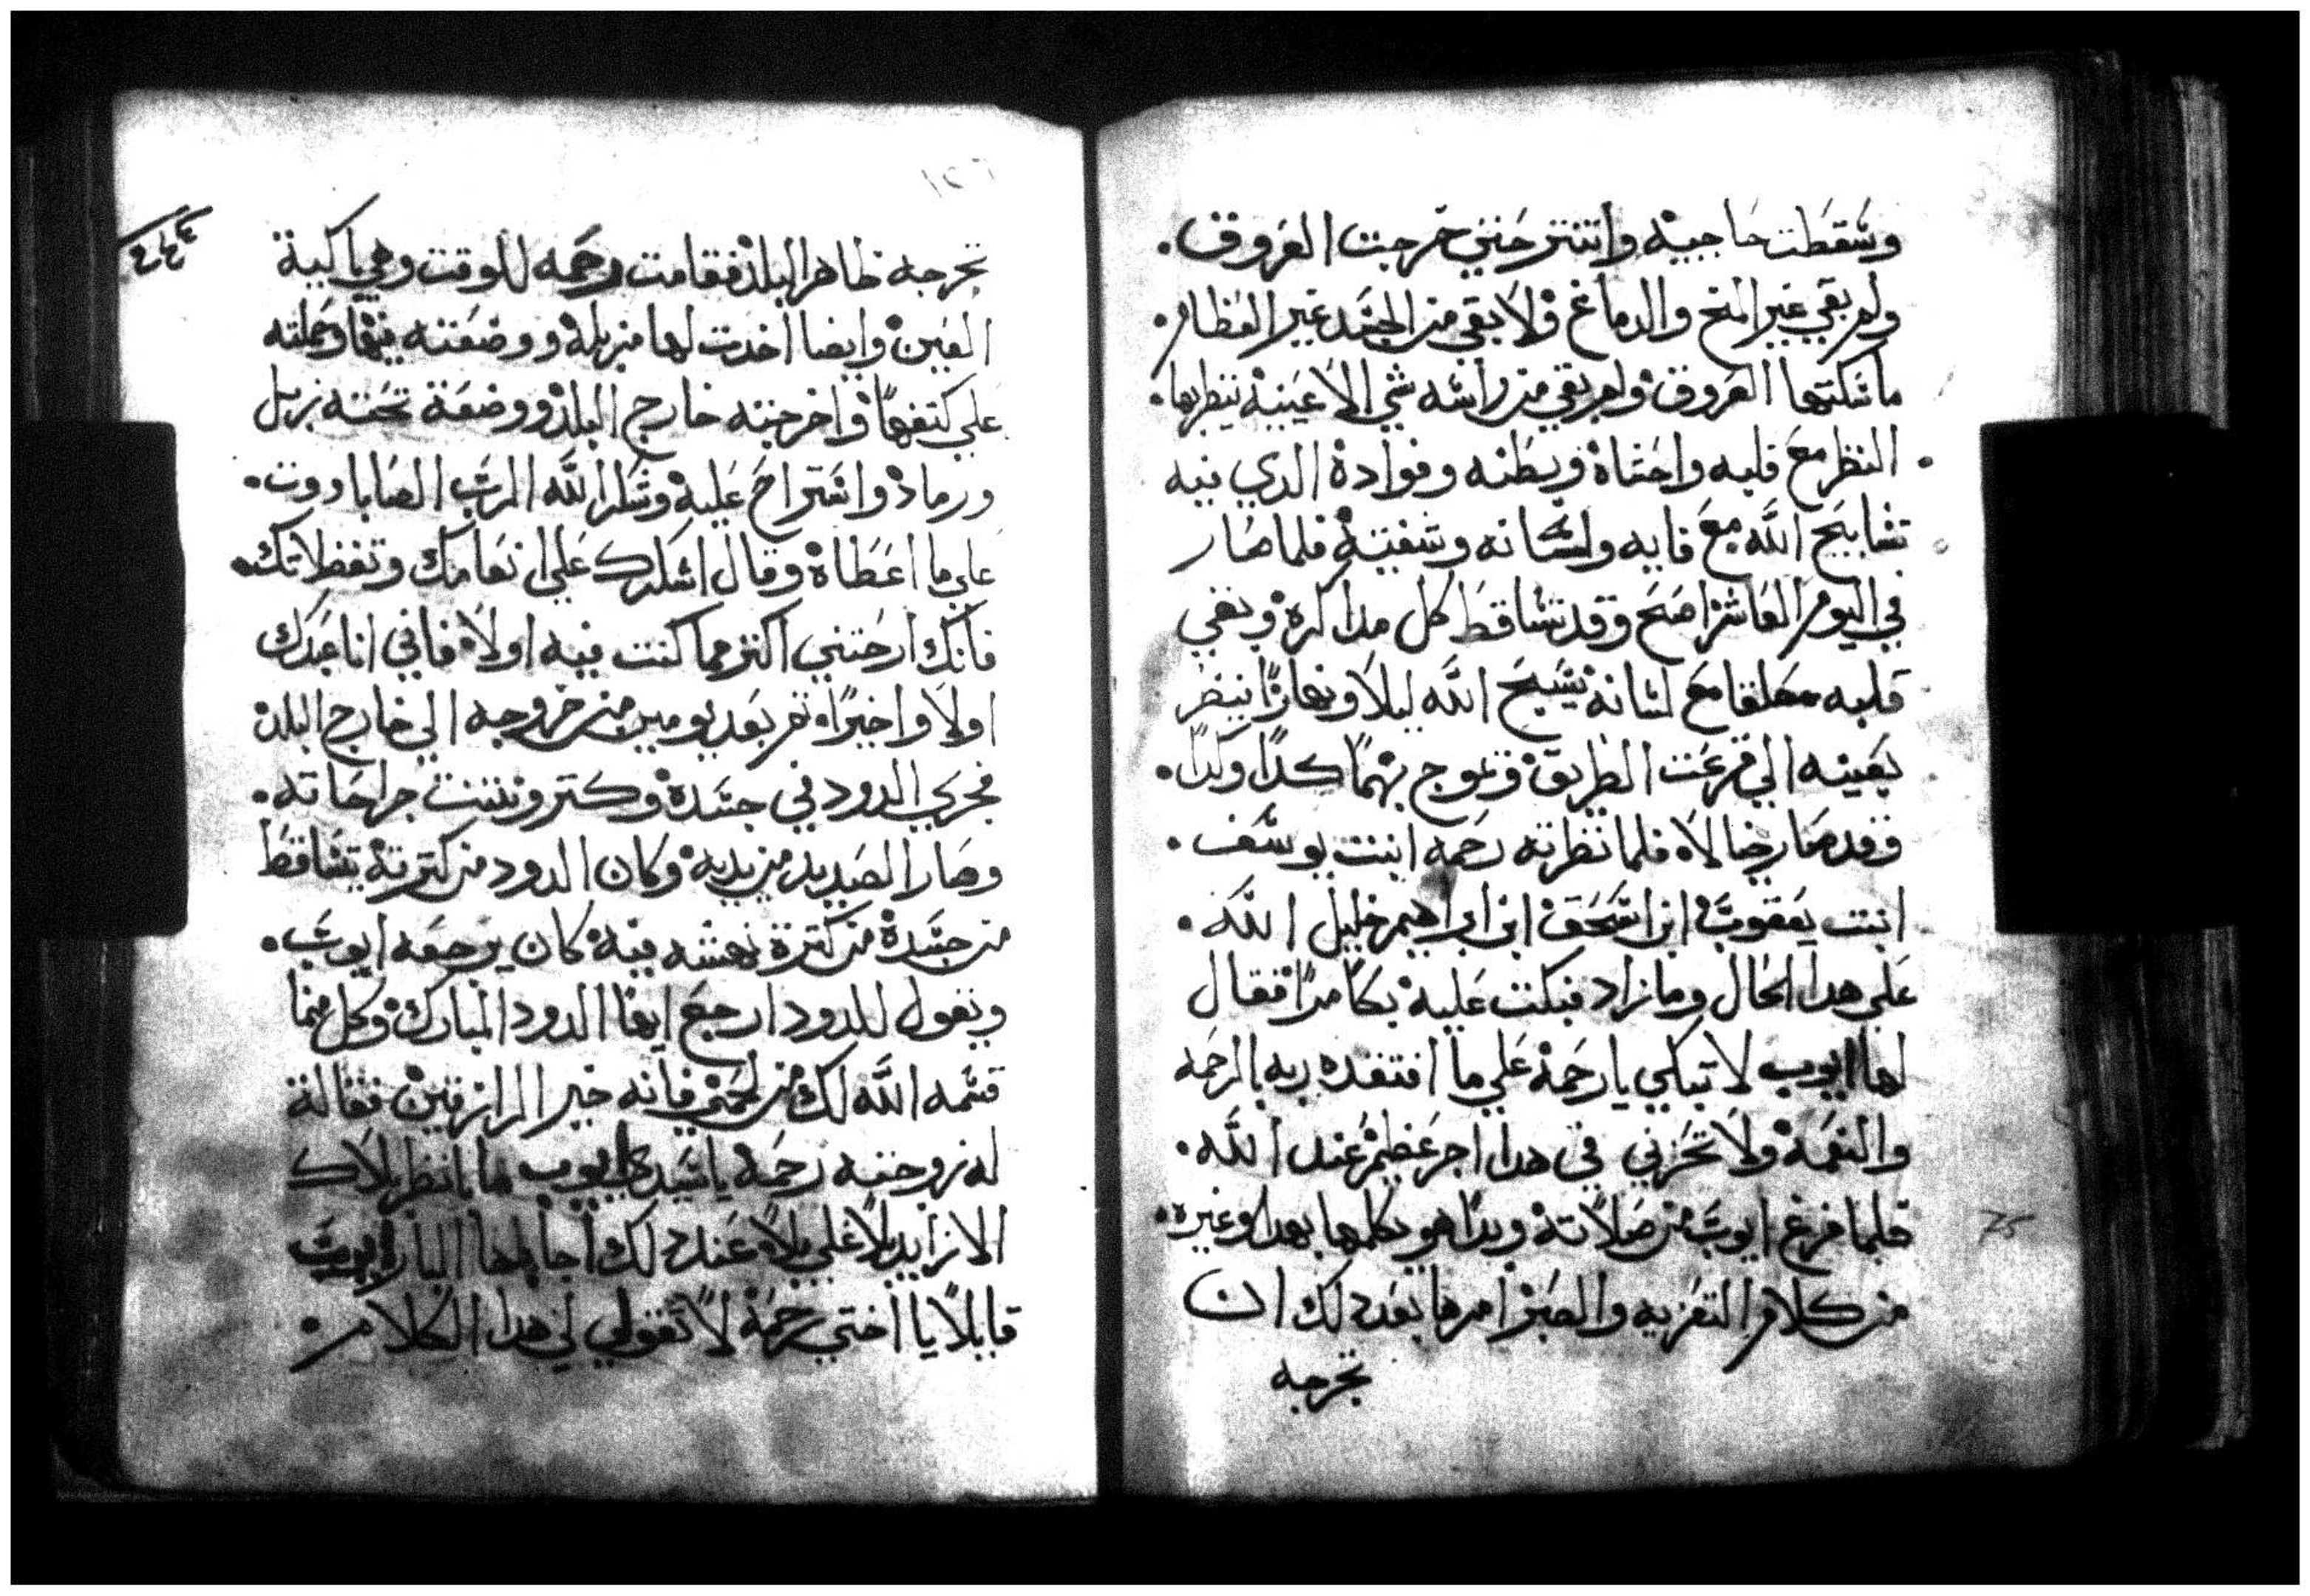 وسقطت حاجبيه وانتتر حتي خرجت العروق.
ولم بقي غير المخ والدماغ ولا بقي من الجسد غير العظام.
ماسكتها العروق ولم بقي من راسه شي الا عينيه ينظر بها.
النظر مع قلبه واحشاه وبطنه وفواده الدي فيه
تسابيح الله مع فايه ولسانه وشفتيه فلما صار
في اليوم العاشر اصبح وقد تساقط كل مداكره وبقي
قلبه معلقا مع لسانه يسبح الله ليلا ونهارًا ينظر
بعينيه الي قرعت الطريق ويموج بهمًا كدًا وكدًا.
وقد صار خيالاه فلما نظرته رحمه ابنت يوسف.
ابنت يعقوب ابن اسحق ابن ابراهيم خليل الله.
علي هدا الحال وما زاد فبكت عليه بكا مرًا فقال
لها ايوب لا تبكي يا رحمه علي ما افتقده ربه بالرحمه
والنعمه ولا تحزني في هدا اجر عظيم عند الله.
فلما فرغ ايوب من صلاته وبدا هو يكلمها بهدا وغيره.
من كلام التعزيه والصبر امرها بعد دلك ان
تخرجه
75
١٢٦
٤٤٤
تخرجه ظاهر البلد فقامت رحمه للوقت وهي باكية
العين وايضا اخدت لها مزبله ووضعته فيها وحملته
علي كتفها واخرجته خارج البلد ووضعة تحته زبل
ورماد واستراح عليه وشكر الله الرب الصاباووت.
علي ما اعطاه وقال اشكرك علي انعامك وتفضلاتك.
فانك ارحتني اكتر مما كنت فيه اولاه فاني انا عبدك
اولا واخيرًا، تم بعد يومين من خروجه الي خارج البلد
فجري الدود في جسده وكتر ونتنت جراحاته.
وصار الصديد من يديه وكان الدود من كترته يتساقط
من جسده من كترة نهشه فيه كان يرجعه ايوب.
ويقول للدود ارجع ايها الدود المبارك وكل مما
قسمه الله لك من لحمي فانه خير الرازقين فقالة
له زوجته رحمه يا سيدي ايوب ما انظر بلاك
الا زايد بلا علي بلاه عند دلك اجابها البار ايوب
قايلًا يا اختي رحمه لا تقولي لي هدا الكلام.